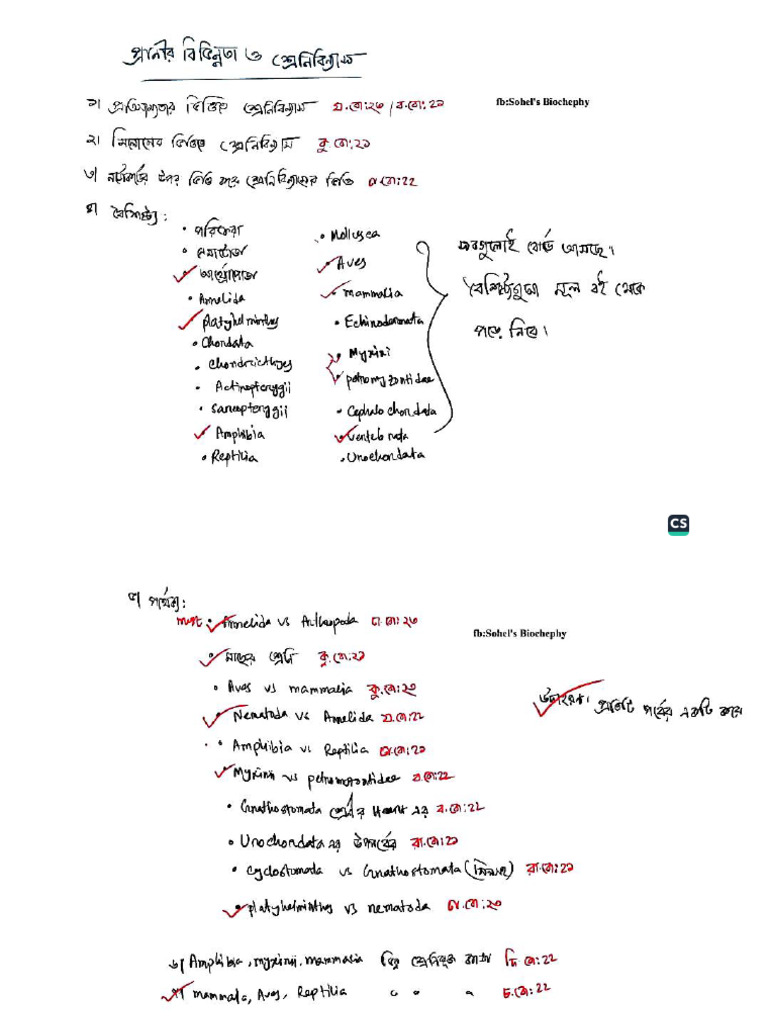 প্রাণীর বিভিন্নতা ও শ্রেণিবিন্যাস
fb:Sohel's Biochephy
১) প্রতিসাম্যতার ভিত্তিতে শ্রেণিবিন্যাস য.বো:২৩/ব.বো:২১
২) সিলোমের ভিত্তিতে শ্রেণিবিন্যাস কু.বো:২১
৩) নটোকর্ডের উপর ভিত্তি করে শ্রেণিবিন্যাসের ভিত্তি বো:22
৪) বৈশিষ্ট্য:
• পরিফেরা
• Mollusca
• Aves
• Annelida
• mammalia
platyhelminthes
• Echinodermata
• Chordata
• Myxini
• Chondricthyes
• petromyzontidae
• Actinopterygii
• Sarcopterygii
• Cephalochordata
• Amphibia
• Vertebrata
• Reptilia
• Urochordata
সবগুলোই বোর্ডে আসছে।
বৈশিষ্ট্যগুলো মূল বই থেকে
পড়ে নিবে।
CS
৫) পার্থক্য:
fb:Sohel's Biochephy
must • Annelida vs Arthropoda বো:২৩
• মাছের শ্রেণি কু.বো:২১
• Aves vs mammalia কু.বো:২৩
• Nematoda vs Annelida য.বো:22
• Amphibia vs Reptilia বো:২১
• Myxini vs petromyzontidae ব.বো:22
• Gnathostomata শ্রেণির Heart এর ব.বো:22
• Urochordata এর উপপর্বের রা.বো:২১
• Cyclostomata vs Gnathostomata রা.বো:২১
• platyhelminthes vs nematoda বো:২৩
উদাহরণ। প্রতিটি পর্বের একটি করে
৬) Amphibia, myxini, mammalia ভিন্ন শ্রেণিভুক্ত কেন দি.বো:22
৭) mammals, Aves, Reptilia " " " চ.বো:22